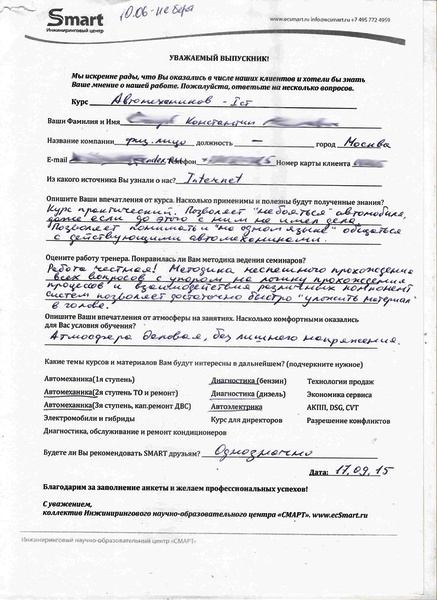 Smart
Инжиниринговый центр
www.ecsmart.ru info@ecsmart.ru +7 495 772 4959
УВАЖАЕМЫЙ ВЫПУСКНИК!
Мы искренне рады, что Вы оказались в числе наших клиентов и хотели бы знать
Ваше мнение о нашей работе. Пожалуйста, ответьте на несколько вопросов.
Курс Автомехаников - 1ст
Ваши Фамилия и Имя Константин
Название компании физ. лицо должность — город Москва
E-mail телефон Номер карты клиента
Из какого источника Вы узнали о нас? Internet
Опишите Ваши впечатления от курса. Насколько применимы и полезны будут полученные знания?
Курс практический. Позволяет "не бояться" автомобиля,
даже если до этого с ним не имел дела.
Позволяет понимать и "на одном языке" общаться
с действующими автомеханиками.
Оцените работу тренера. Понравилась ли Вам методика ведения семинаров?
Работа честная! Методика, неспешного прохождения
всех вопросов с упором на логику прохождения
процесов и взаимодействия различных компонент
систем позволяет достаточно быстро "уложить материал"
в голове.
Опишите Ваши впечатления от атмосферы на занятиях. Насколько комфортными оказались
для Вас условия обучения?
Атмосфера деловая, без лишнего напряжения.
Какие темы курсов и материалов Вам будут интересны в дальнейшем? (подчеркните нужное)
Автомеханика(1я ступень) Диагностика (бензин) Технологии продаж
Автомеханика(2я ступень ТО и ремонт) Диагностика (дизель) Экономика сервиса
Автомеханика(3я ступень, кап.ремонт ДВС) Автоэлектрика АКПП, DSG, CVT
Электромобили и гибриды Курс для директоров Разрешение конфликтов
Диагностика, обслуживание и ремонт кондиционеров
Будете ли Вы рекомендовать SMART друзьям? Однозначно
Дата: 17.09.15
Благодарим за заполнение анкеты и желаем профессиональных успехов!
С уважением,
коллектив Инжинирингового научно-образовательного центра «СМАРТ». www.ecSmart.ru
Инжиниринговый научно-образовательный центр «СМАРТ»